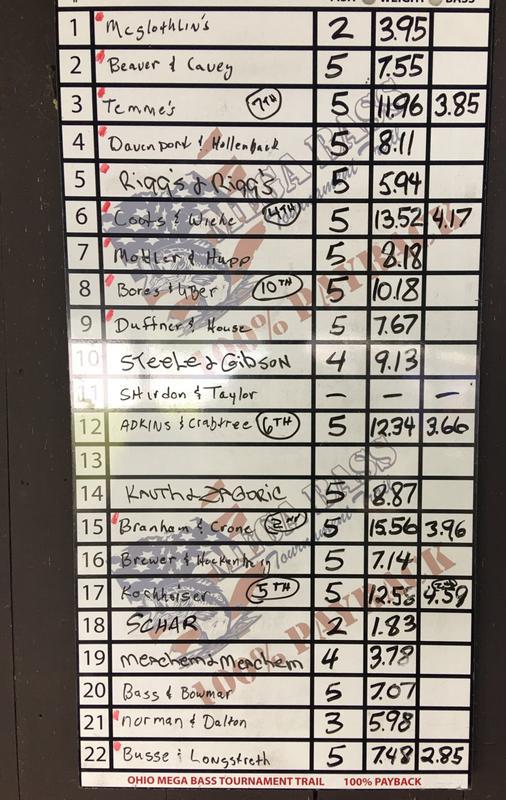 # FISH WEIGHT BASS
1 Mcglothlin's 2 3.95
2 Beaver & Cavey 5 7.55
3 Temme's 7TH 5 11.96 3.85
4 Davenport & Hollenback 5 8.11
5 Rigg's & Rigg's 5 5.94
6 Coots & Wiehe 4TH 5 13.52 4.17
7 Mobler & Hupp 5 8.18
8 Bores & Uber 10TH 5 10.18
9 Duffner & House 5 7.67
10 Steele & Gibson 4 9.13
11 Shirdon & Taylor – – –
12 ADKINS & Crabtree 6TH 5 12.34 3.66
13
14 KNUTH & ZAGORIC 5 8.87
15 Branham & Crone 2ND 5 15.56 3.96
16 Brewer & 5 7.14
17 Kochheiser 5TH 5 12.58 4.59
18 SCHAR 2 1.83
19 Meachem & Meachem 4 3.78
20 Bass & Bowmar 5 7.07
21 Norman & Dalton 3 5.98
22 Busse & Longstreth 5 7.48 2.85
OHIO MEGA BASS TOURNAMENT TRAIL 100% PAYBACK